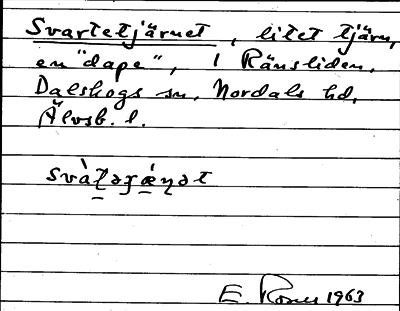 Svartetjärnet, litet tjärn,
en "dape", i Ränsliden,
Dalskogs sn, Nordals hd,
Älvsb. l.
E. 1963